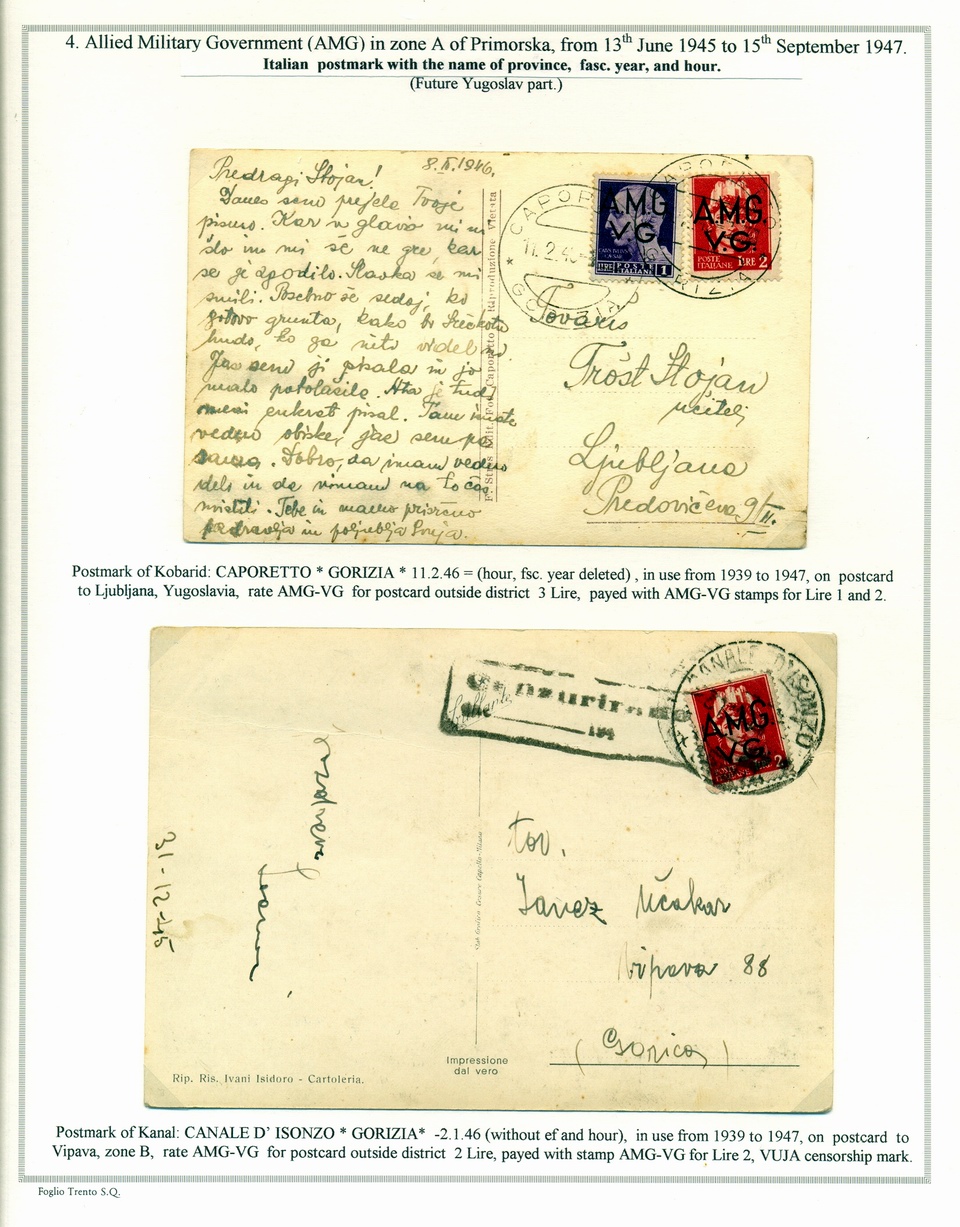 4. Allied Military Government (AMG) in zone A of Primorska, from 13th June 1945 to 15th September 1947.
Italian postmark with the name of province, fasc. year, and hour.
(Future Yugoslav part.)
8.II.1946.
Predragi Stojan!
Danes sem prejela Tvoje
pismo. Kar v glavo mi ni
šlo in mi še ne gre, kar
se je zgodilo. Slavka se mi
smili. Posebno še sedaj, ko
gotovo grunta, kako bo
hudo, ko ga
Jaz sem ji pisala in jo
malo potolažila. Ata je tudi
enkrat pisal. Tam
vedno obiske, jaz sem pa
sama. Dobro, da imam vedno
in da na
. Tebe in mamo prisrčno
pozdravlja in poljublja Sonja.
F. Stres Edit. Fot. Caporetto Riproduzione Vietata
CAPORETTO
* GORIZIA *
11.2.46
AMG
VG
LIRE POSTE ITALIANE 1
AMG
VG
POSTE ITALIANE LIRE 2
Tovariš
Trošt Stojan
učitelj
Ljubljana
Predovičeva 9/II.
Postmark of Kobarid: CAPORETTO * GORIZIA * 11.2.46 = (hour, fsc. year deleted) , in use from 1939 to 1947, on postcard
to Ljubljana, Yugoslavia, rate AMG-VG for postcard outside district 3 Lire, payed with AMG-VG stamps for Lire 1 and 2.
Cenzurirano
194
CANALE D'ISONZO
AMG
VG
31-12-45
tov.
Janez Učakar
Vipava 88
(Gorica)
Impressione
dal vero
Rip. Ris. Ivani Isidoro - Cartoleria.
Postmark of Kanal: CANALE D' ISONZO * GORIZIA* -2.1.46 (without ef and hour), in use from 1939 to 1947, on postcard to
Vipava, zone B, rate AMG-VG for postcard outside district 2 Lire, payed with stamp AMG-VG for Lire 2, VUJA censorship mark.
Foglio Trento S.Q.